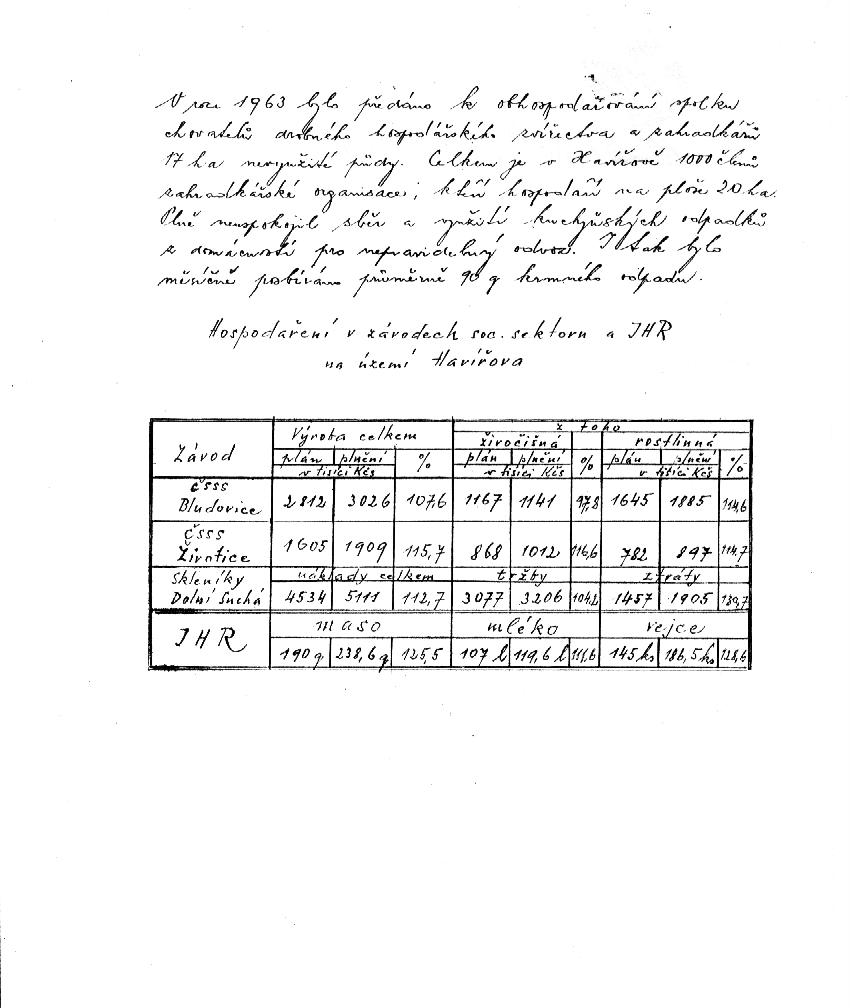 V roce 1963 bylo předáno k obhospodařování spolku
chovatelů drobného hospodářského zvířectva a zahradkářů
17 ha nevyužité půdy. Celkem je v Havířově 1000 členů
zahradkářské organisace, kteří hospodaří na ploše 20 ha.
Plně neuspokojil sběr a využití kuchyňských odpadků
z domácností pro nepravidelný odvoz. I tak bylo
měsíčně posbíráno průměrně 90 q krmného odpadu.
Hospodaření v závodech soc. sektoru a JHR
na území Havířova
Závod Výroba celkem z toho
živočišná rostlinná
plán plnění % plán plnění % plán plnění %
v tisíci Kčs v tisíci Kčs v tisíci Kčs
ČSSS
Bludovice 2812 3026 107,6 1167 1141 97,8 1645 1885 114,6
ČSSS
Životice 1605 1909 115,7 868 1012 116,6 782 897 114,7
Skleníky náklady celkem tržby ztráty
Dolní Suchá 4534 5111 112,7 3077 3206 104,2 1457 1905 130,7
JHR maso mléko vejce
190 q 238,6 q 125,5 107 l 119,6 l 111,6 145 ks 186,5 ks 128,6